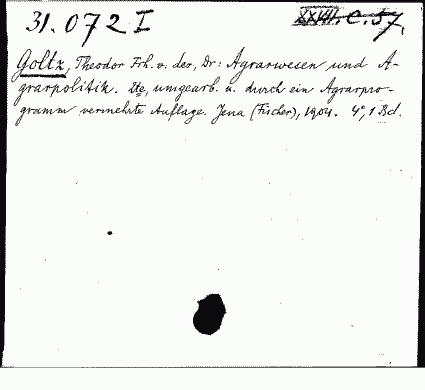 31.072 I XXVIII. C. 57.
Goltz, Theodor Frh. v. der, Dr: Agrarwesen und A-
grarpolitik. 2te, umgearb. u. durch ein Agrarpro-
gramm vermehrte Auflage. Jena (Fischer), 1904. 4°, 1 Bd.